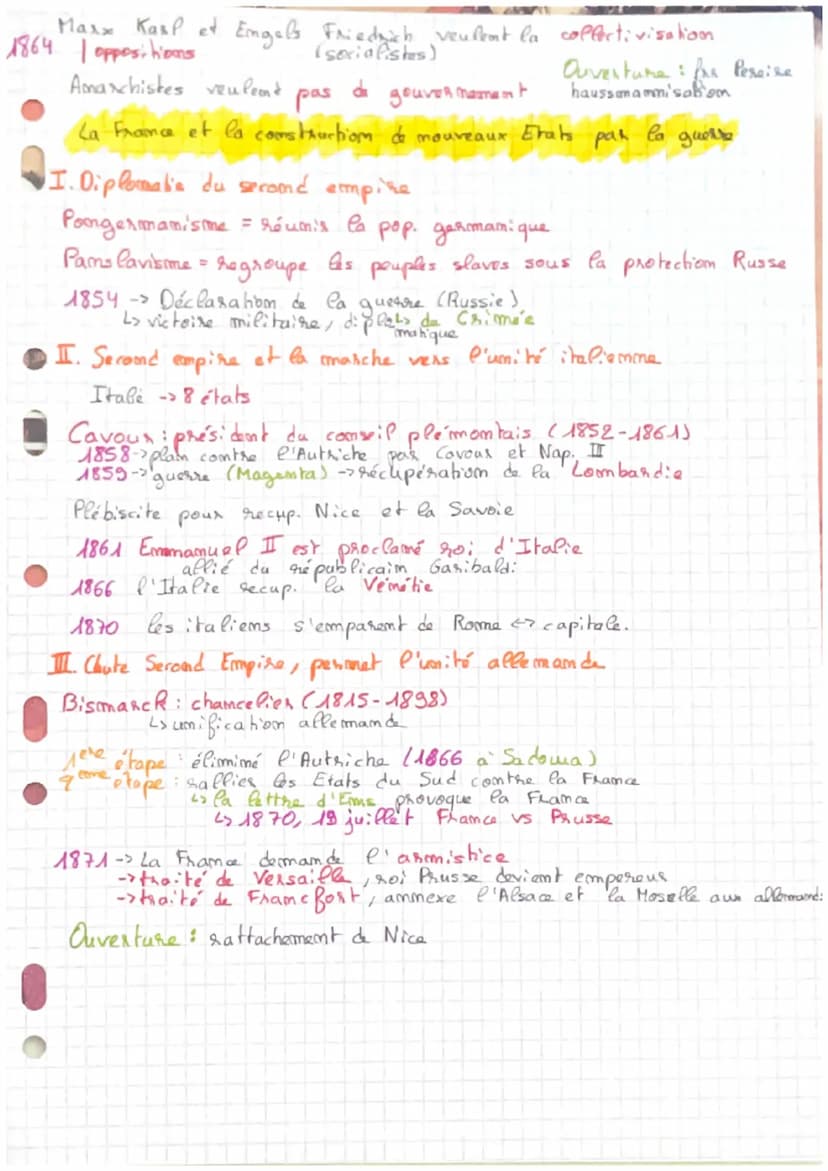 Marx Karl et Engels Friedrich veulent la collectivisation
1864 | oppositions (socialistes)
Ouverture : frs Pereire
Anarchistes veulent pas de gouvernement
haussmannnisation
La France et la construction de nouveaux Etats par la guerre
I. Diplomatie du second empire
Pangermanisme = réunir la pop. germanique
Panslavisme = regroupe les peuples slaves sous la protection Russe
1854 -> Déclaration de la guerre (Russie)
↳ de Crimée
↳ victoire militaire, diplomatique
II. Second empire et la marche vers l'unité italienne
Italie -> 8 états
Cavour : président du conseil piémontais (1852-1861)
1858 -> plan contre l'Autriche par Cavour et Nap. III
1859 -> guerre (Magenta) -> récupération de la Lombardie
Plébiscite pour recup. Nice et la Savoie
1861 Emmanuel II est proclamé roi d'Italie
allié du républicain Garibaldi
1866 l'Italie recup. la Vénétie
1870 les italiens s'emparent de Rome <-> capitale.
III. Chute Second Empire, permet l'unité allemande
Bismarck : chancelier (1815-1898)
↳ unification allemande
1ere étape : éliminé l'Autriche (1866 à Sadowa)
2eme etape : rallier les Etats du Sud contre la France
↳ la lettre d'Ems provoque la France
↳ 1870, 19 juillet France vs Prusse
1871 -> La France demande l'armistice
-> traité de Versaille, roi Prusse devient empereur
-> traité de Francfort, annexe l'Alsace et la Moselle aux allemands
Ouverture : rattachement de Nice